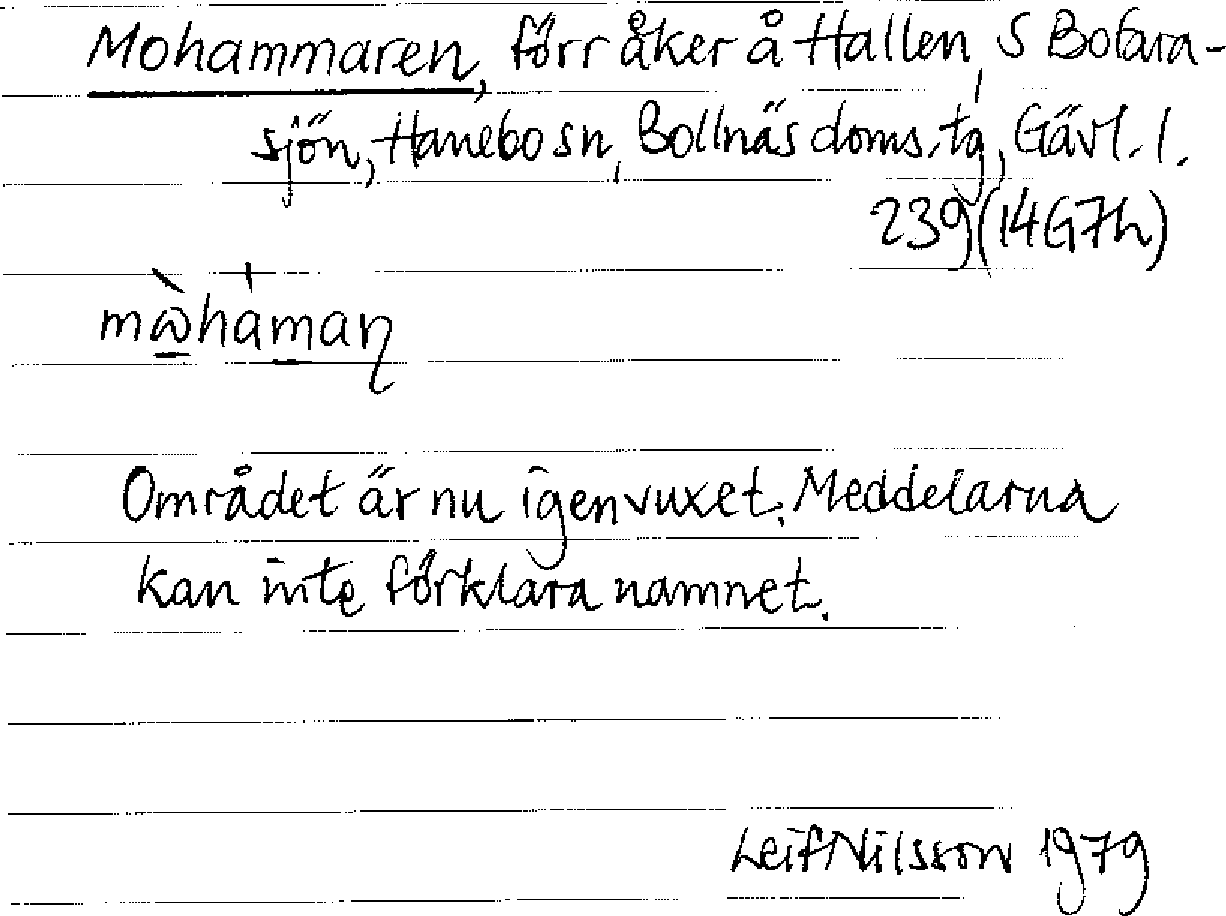 Mohammaren, förr åker å Hallen, S Bofara-
sjön, Hanebo sn, Bollnäs doms. tg, Gävl. l.
239 (14G7h)
mὼ̲hám̲aɳ
Området är nu igenvuxet. Meddelarna
kan inte förklara namnet.
Leif Nilsson 1979